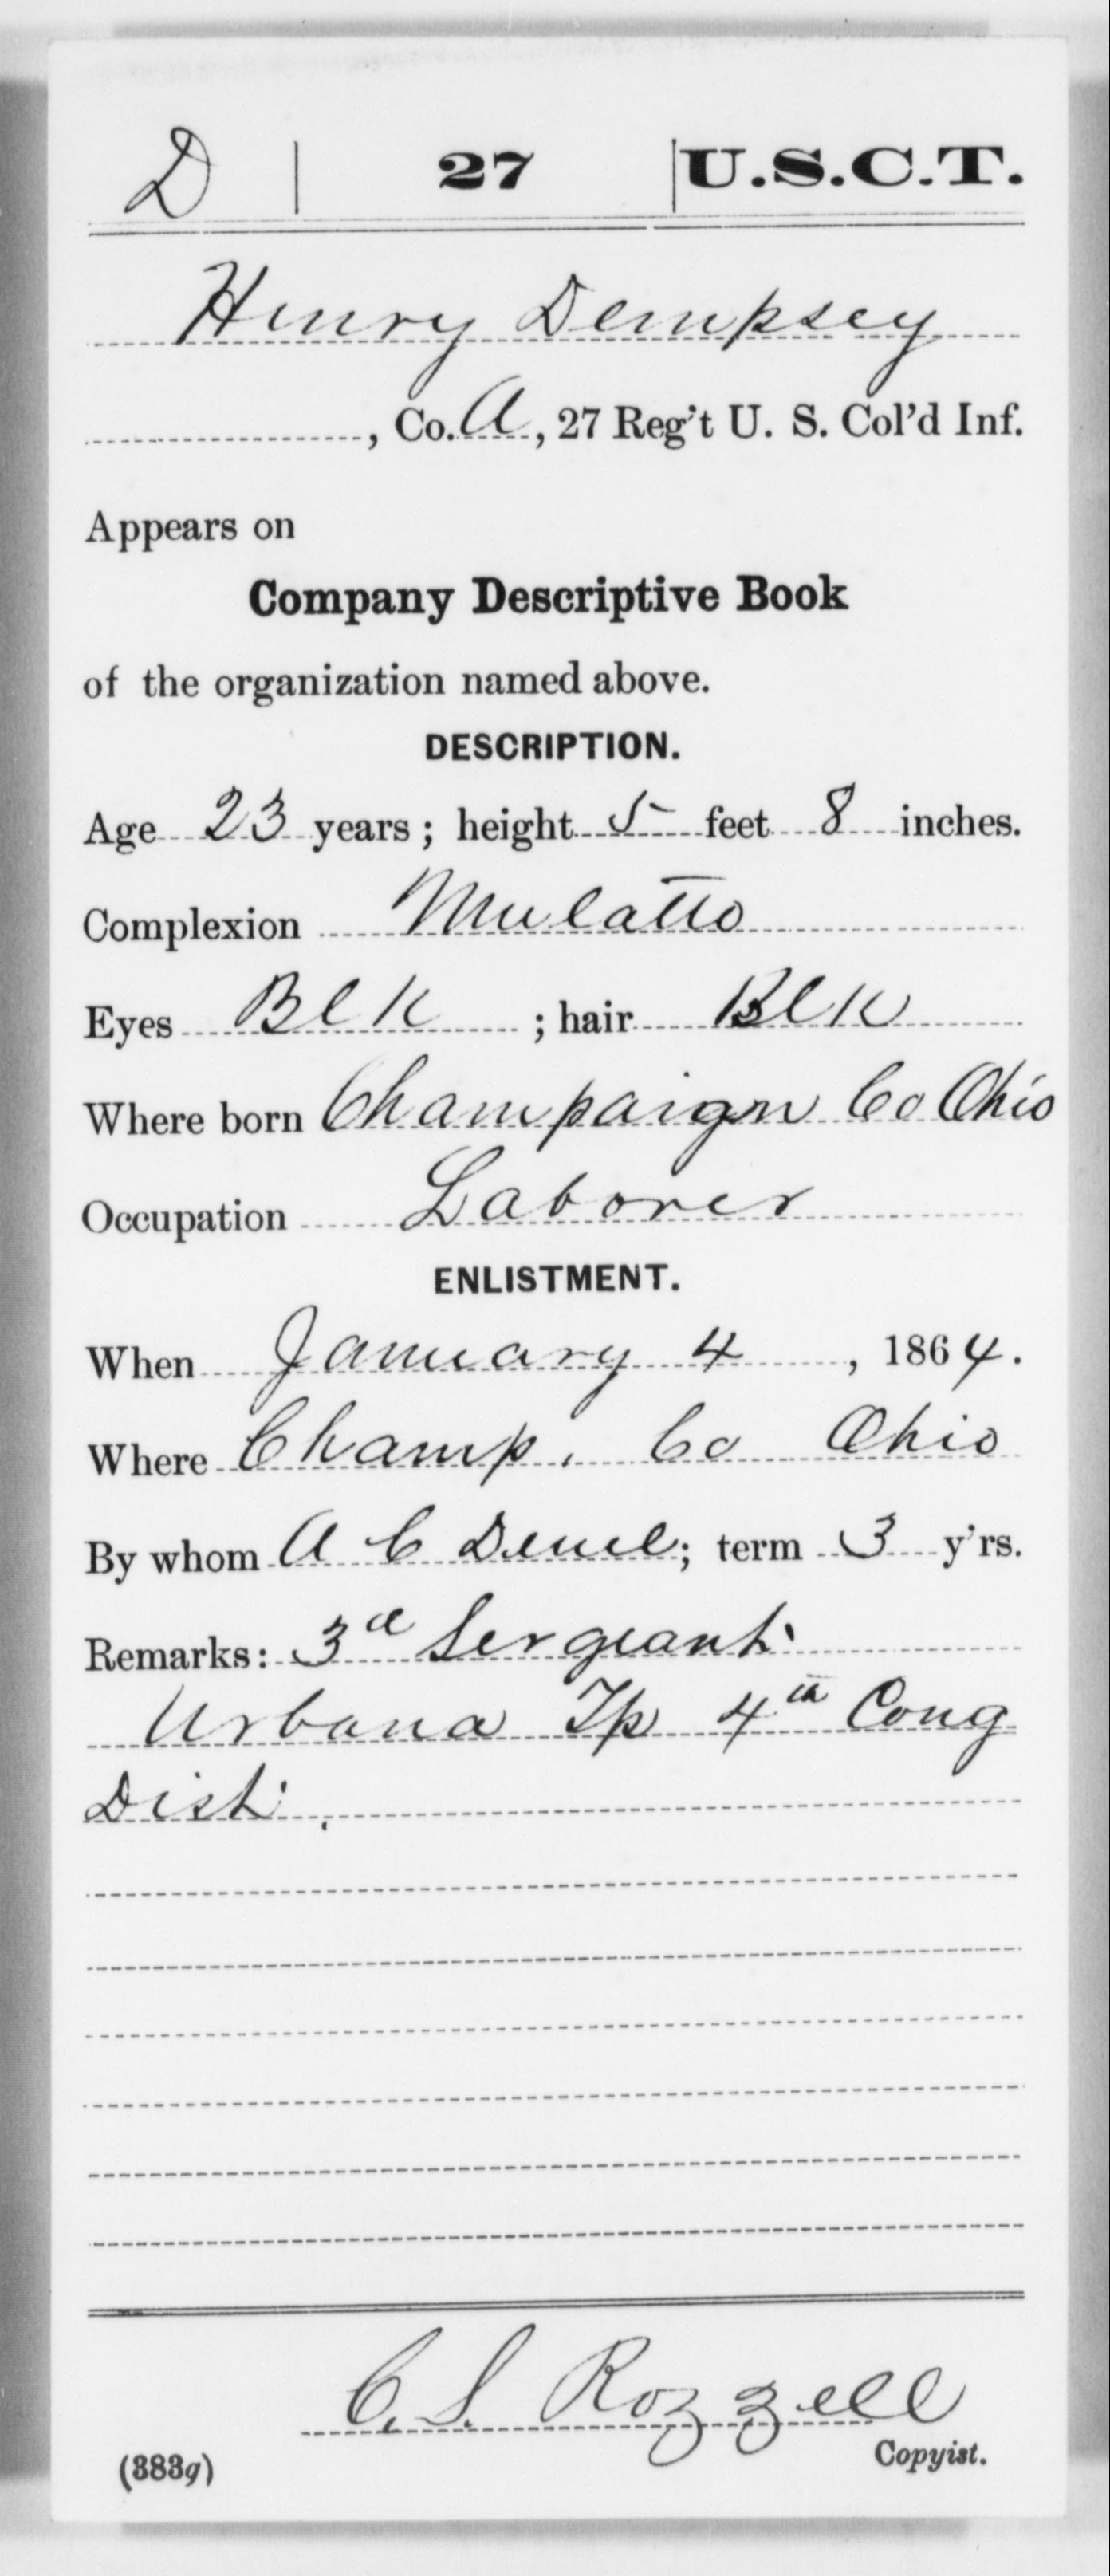 D | 27 | U.S.C.T.
Henry Dempsey
, Co. A, 27 Reg't U. S. Col'd Inf.
Appears on
Company Descriptive Book
of the organization named above.
DESCRIPTION.
Age 23 years; height 5 feet 8 inches.
Complexion Mulatto
Eyes Blk ; hair Blk
Where born Champaign Co Ohio
Occupation Laborer
ENLISTMENT.
When January 4, 1864.
Where Champ. Co Ohio
By whom A C Deuel; term 3 y'rs.
Remarks: 3d Sergeant
Urbana Tp 4th Cong
Dist.
C. S. Rozzell
Copyist.
(383g)